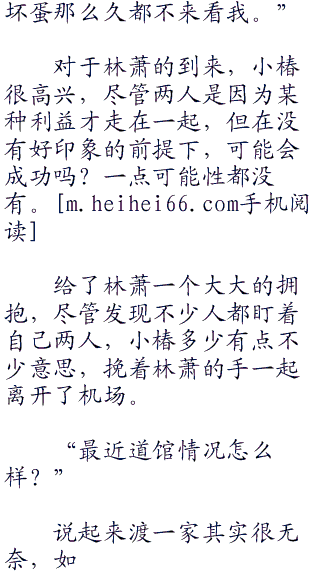 坏蛋那么久都不来看我。”
对于林萧的到来，小椿
很高兴，尽管两人是因为某
种利益才走在一起，但在没
有好印象的前提下，可能会
成功吗？一点可能性都没
有。[m.heihei66.com手机阅
读]
给了林萧一个大大的拥
抱，尽管发现不少人都盯着
自己两人，小椿多少有点不
少意思，挽着林萧的手一起
离开了机场。
“最近道馆情况怎么
样？”
说起来渡一家其实很无
奈，如